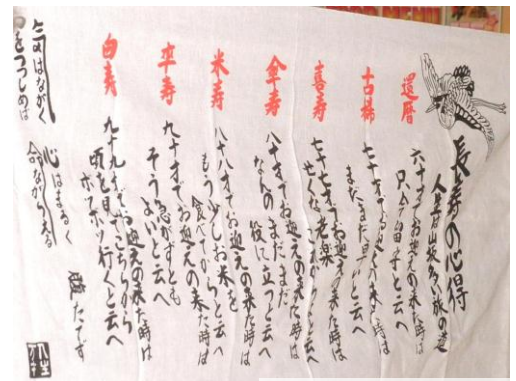 長寿の心得
人生は山坂多い旅の道
還暦
六十才でお迎えの来た時は
只今留守と云へ
古稀
七十才でお迎えの来た時は
まだまだ早いと云へ
喜寿
七十七才でお迎えの来た時は
せくな老楽これからよと云へ
傘寿
八十才でお迎えの来た時は
なんのまだまだ役に立つと云へ
米寿
八十八才でお迎えの来た時は
もう少しお米を食べてからと云へ
卒寿
九十才でお迎えの来た時は
そう急がずともよいと云へ
白寿
九十九才でお迎えの来た時は
頃を見てこちらからボツボツ行くと云へ
気はながく
心はまるく
腹たてず
をつつしめば
命ながらえる